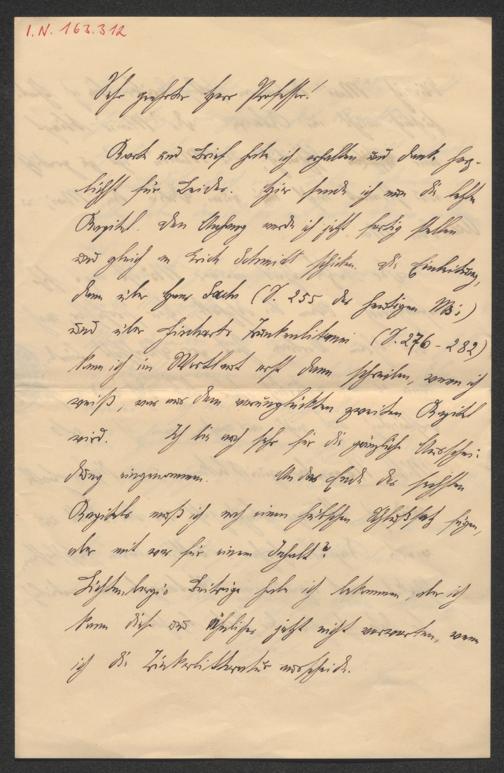 I.N. 163.312
Sehr geehrter Herr Professor!
Karte und Brief habe ich erhalten und danke herz-
lichst für Beides. Hier sende ich nun die letzten
Kapitel. Den Anhang werde ich jetzt fertig stellen
und gleich an Erich Schmidt schicken. Die Einleitung,
dann über Hans Sachs (S. 255 des heutigen Ms.)
und über Fischarts Trunkenlitanei (S. 276-282)
kann ich im Wortlaut erst dann schreiben, wenn ich
weiß, was aus dem verunglückten zweiten Kapitel
wird. Ich bin noch sehr für die gänzliche Ausschei-
dung eingenommen. An das Ende des sechsten
Kapitels muß ich noch einen hübschen Schlußsatz fügen,
aber mit was für einem Inhalt?
Lichtenbergs Beiträge habe ich bekommen, aber ich
kann diese und Ähnliches jetzt nicht verwerten, wenn
ich die Trinkerlitteratur ausscheide.